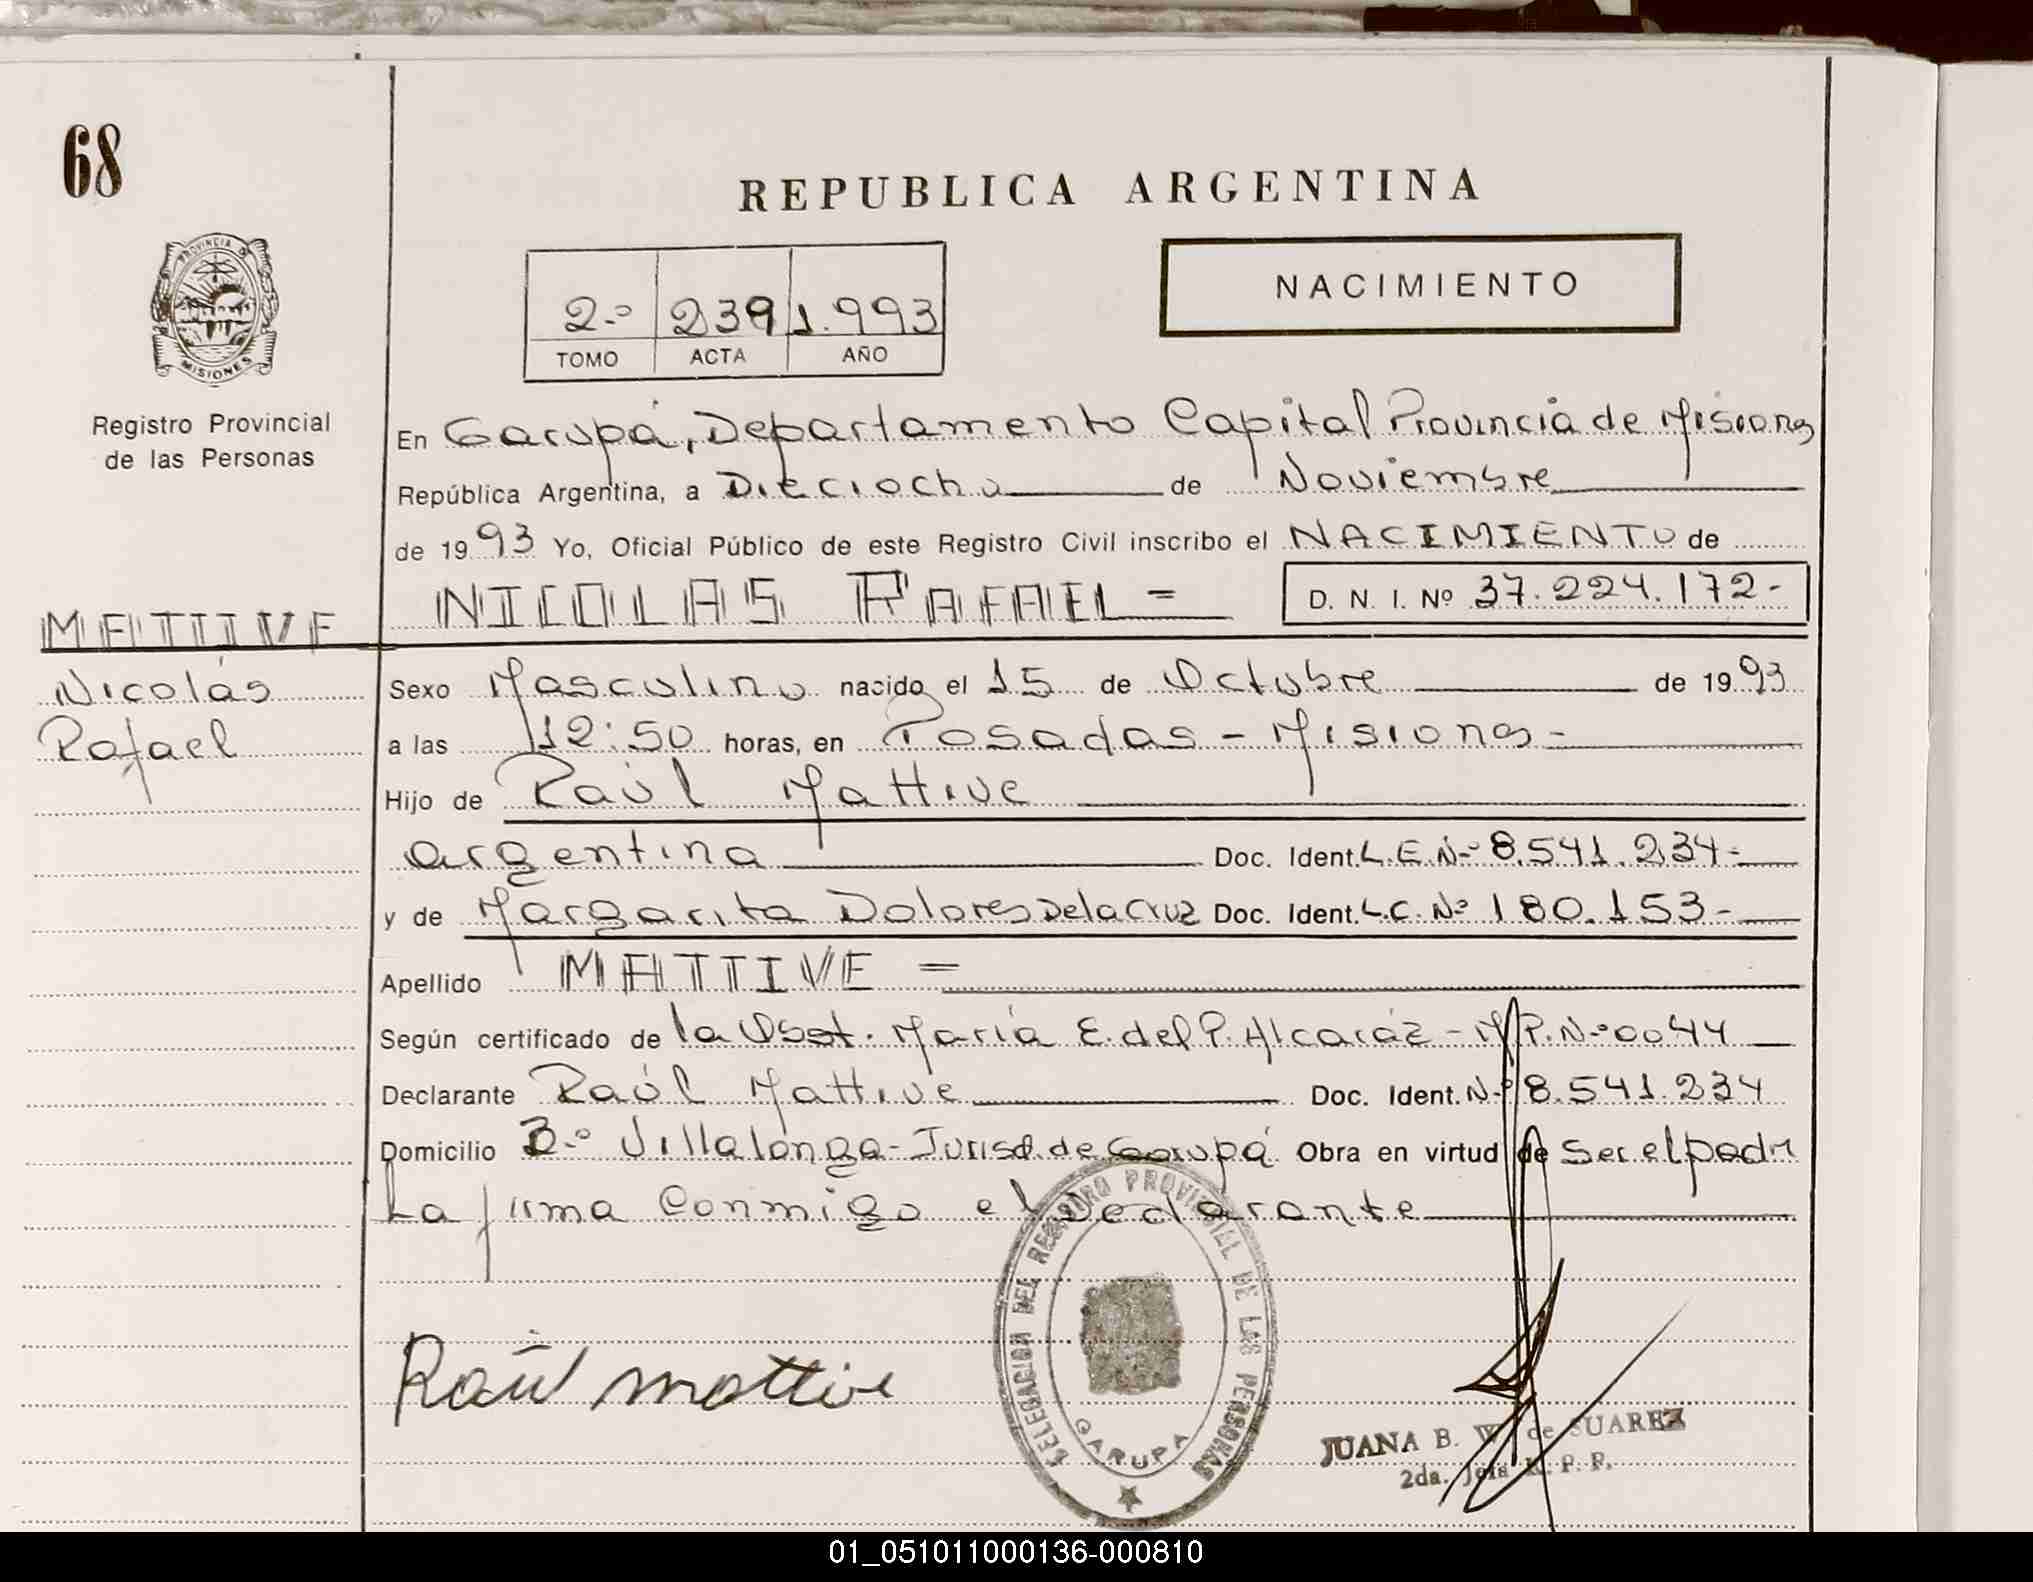 68
REPUBLICA ARGENTINA
PROVINCIA DE
MISIONES
Registro Provincial
de las Personas
2.º 239 1.993
TOMO ACTA AÑO
NACIMIENTO
En Garupá, Departamento Capital Provincia de Misiones
República Argentina, a Dieciocho de Noviembre
de 1993 Yo, Oficial Público de este Registro Civil inscribo el NACIMIENTO de
NICOLAS RAFAEL =
D. N. I. Nº 37.224.172-
MATTIVE
Nicolás
Rafael
Sexo Masculino nacido el 15 de Octubre de 1993
a las 12:50 horas, en Posadas - Misiones -
Hijo de Raúl Mattive
argentina Doc. Ident. L.E.Nº 8.541.234-
y de Margarita Dolores De la Cruz Doc. Ident. L.C. Nº 180.153-
Apellido MATTIVE =
Según certificado de la Obst. María E. del P. Alcaráz - M.P.Nº 0044
Declarante Raúl Mattive Doc. Ident. Nº 8.541.234
Domicilio Bº Villalonga - Jurisd. de Garupá Obra en virtud de Ser el padre
La firma Conmigo el Declarante
Raúl Mattive
DELEGACION DEL REGISTRO PROVINCIAL DE LAS PERSONAS
GARUPA
JUANA B. W. de SUAREZ
2da. Jefa R. P. P.
01_051011000136-000810